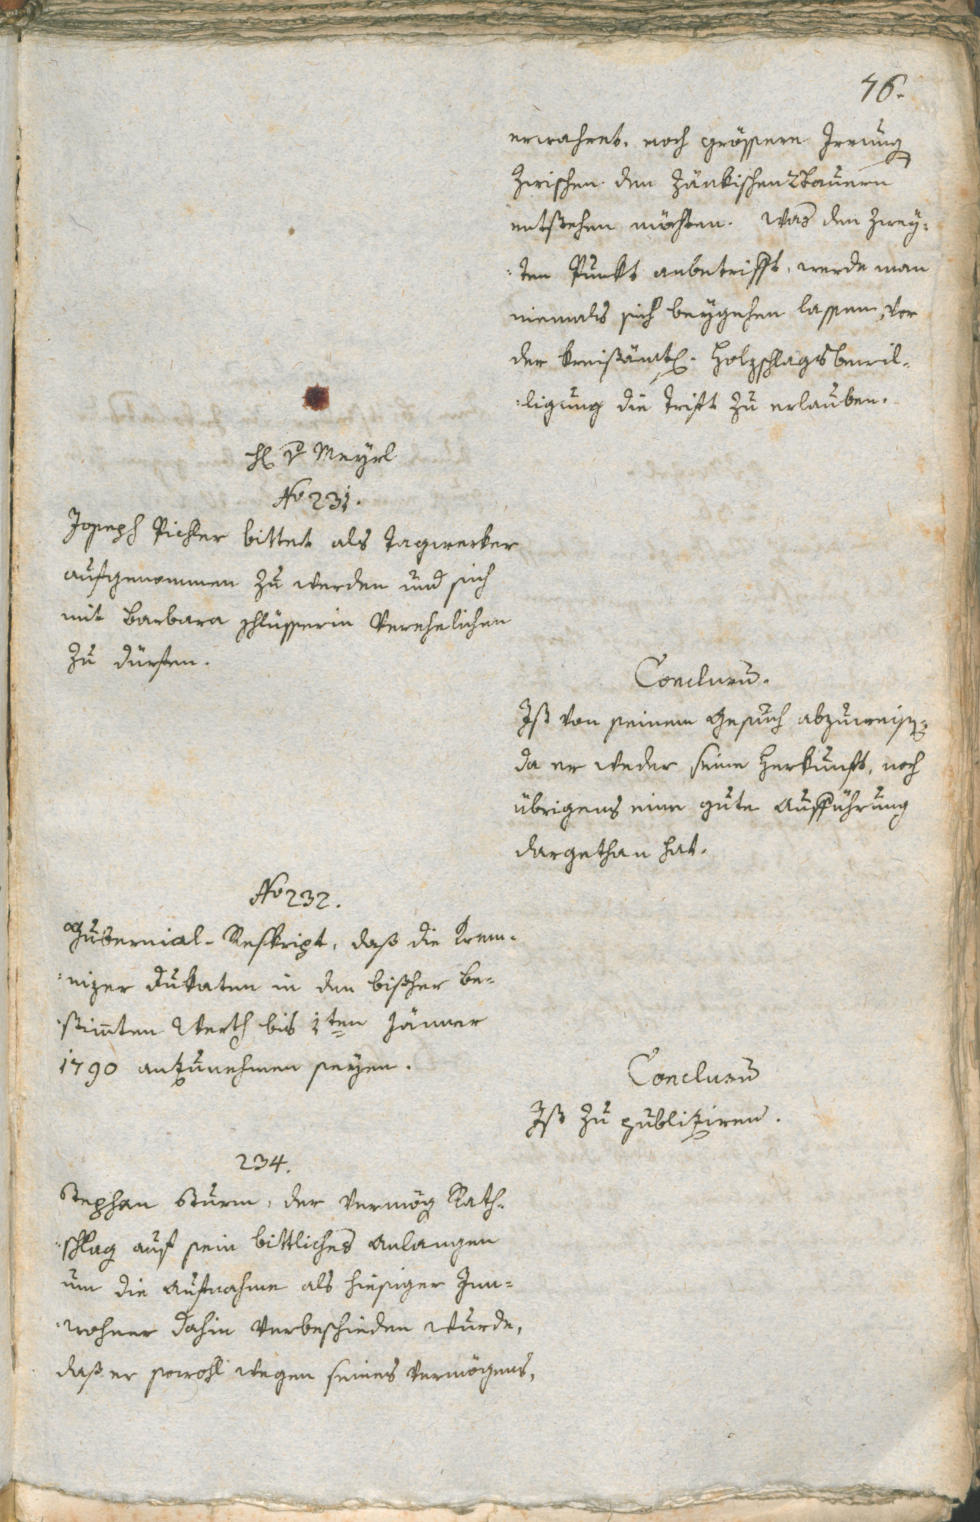 76.
erwahret, noch grössere Irrung
zwischen den zänkischen Bauern
entstehen möchten. Was den zwey-
:ten Punkt anbetrifft, werde man
niemals sich beygehen lassen, vor
der kreisämtl. Holzschlagsbewil-
:ligung die Trift zu erlauben.
H v Meyrl
No 231.
Joseph Pichler bittet als Tagwerker
aufgenommen zu werden und sich
mit Barbara verehelichen
zu dürfen.
Conclusū.
Ist von seinem Gesuch abzuweisen,
da er weder seine Herkunft, noch
übrigens eine gute Aufführung
dargethan hat.
No 232.
Gubernial-Reskript, daß die Krem-
:nizer Dukaten in den bisher be-
:stim̄ten Werth bis 1ten Jänner
1790 anzunehmen seyen.
Conclusū
Ist zu publiziren.
234.
Stephan Sturm, der vermög Rath-
:schlag auf sein bittliches Anlangen
um die Aufnahme als hiesiger Inn-
:wohner dahin verbeschieden wurde,
daß er sowohl wegen seines Vermögens,